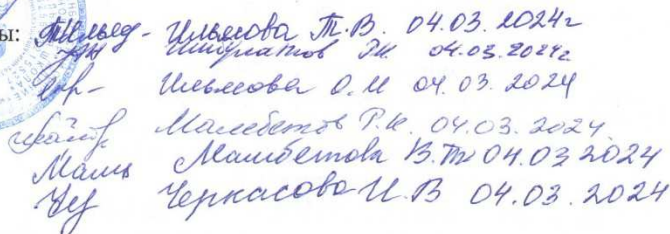 ы: Ильясова Т.В. 04.03.2024г
Ишмратов Р.К. 04.03.2024г
Ильясова О.И 04.03.2024
Мамбетов Р.К. 04.03.2024.
Мамь Мамбетова В.Т 04.03.2024
Черкасова И.В 04.03.2024